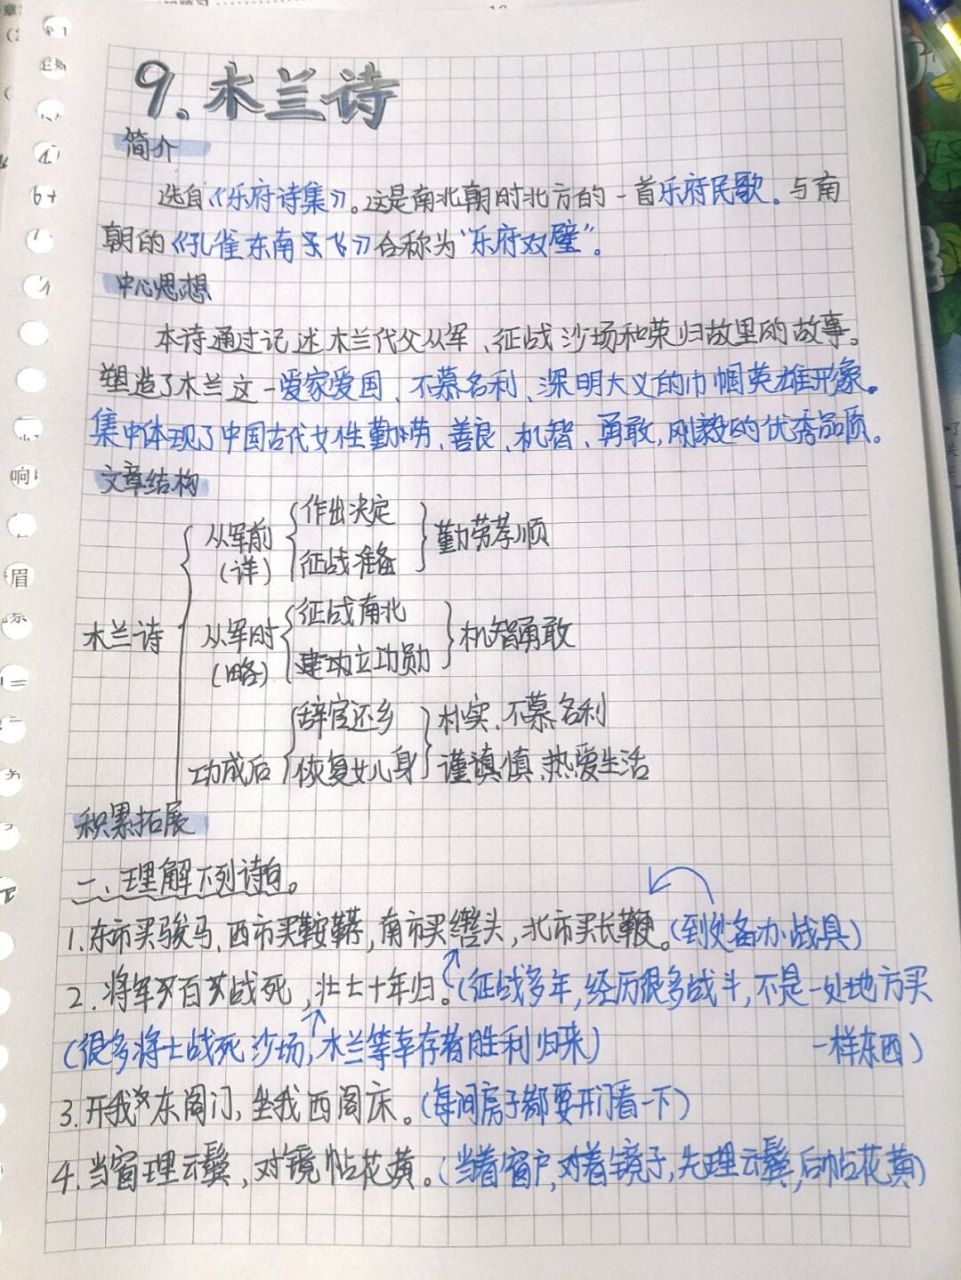 9.木兰诗
简介
选自《乐府诗集》。这是南北朝时北方的一首乐府民歌。与南
朝的《孔雀东南飞》合称为"乐府双璧"。
中心思想
本诗通过记述木兰代父从军、征战沙场和荣归故里的故事。
塑造了木兰这一爱家爱国、不慕名利、深明大义的巾帼英雄形象。
集中体现了中国古代女性勤劳、善良、机智、勇敢,刚毅的优秀品质。
文章结构
木兰诗
从军前
(详)
作出决定
征战准备
勤劳孝顺
从军时
(略)
征战南北
建功立功勋
机智勇敢
功成后
辞官还乡
恢复女儿身
朴实、不慕名利
谨慎、热爱生活
积累拓展
二、理解下列诗句。
1.东市买骏马,西市买鞍鞯,南市买辔头,北市买长鞭。(到处备办战具)
2.将军百战死,壮士十年归。(征战多年,经历很多战斗,不是一处地方买
(很多将士战死沙场,木兰等幸存者胜利归来) 一样东西)
3.开我东阁门,坐我西阁床。(每间房子都要开门看一下)
4.当窗理云鬓,对镜帖花黄。(当着窗户,对着镜子,先理云鬓,后帖花黄)
6+
响
眉